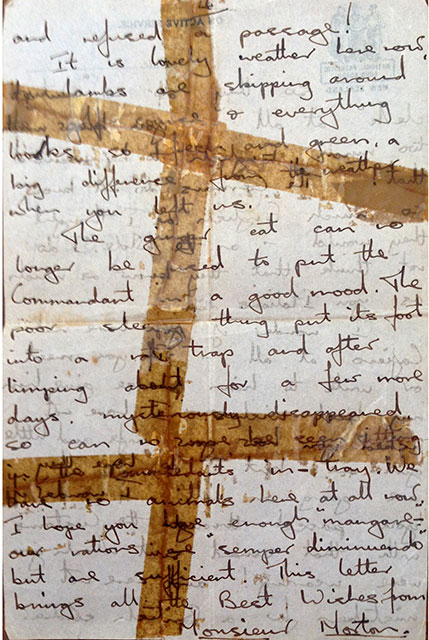 and refused a passage!
It is lovely weather here now,
lambs are skipping around
& everything
looks so fresh and green, a
big difference from the weather
when you left us.
The ginger cat can no
longer be used to put the
Commandant in a good mood. The
poor thing put its foot
into a rat trap and after
limping about for a few more
days, mysteriously disappeared
so can no
the Commandants in-tray. We
have no animals here at all now.
I hope you have enough "mangare" –
our rations were "semper diminuendo"
but are sufficient. This letter
brings all the Best Wishes from
Monsieur Morton.